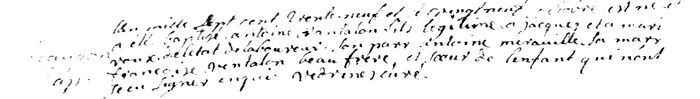 L'an mille sept cent trente neuf et le vingt neuf octobre est né et
a été baptisé antoine ventalon fils legitime a jacques et a mari
roux de letat de laboureur son parr antoine meraville sa marr
francoise ventalon beau frere, et sœur de lenfant qui nont
sceu signer enquis vedrines curé